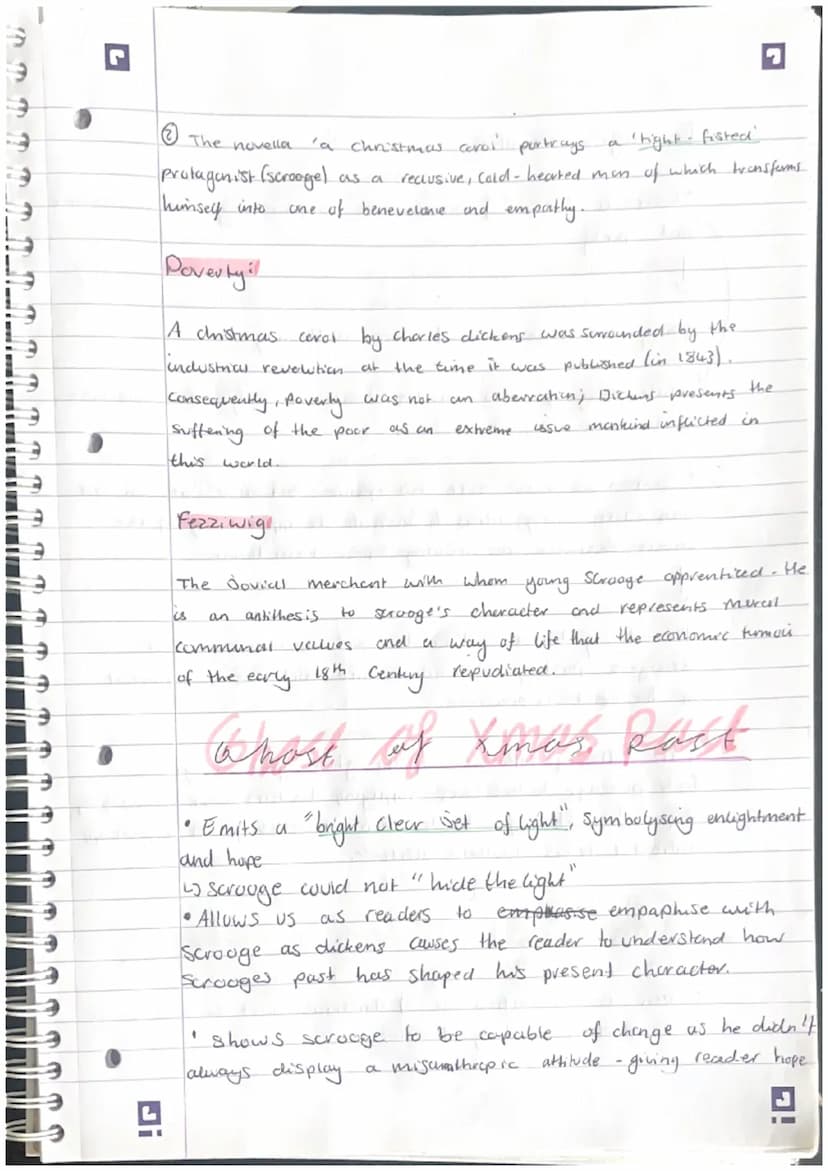 ② The novella 'a christmas carol' portrays a 'tight-fisted'
protagonist (scrooge) as a reclusive, cold-hearted man of which transforms
himself into one of benevelance and empathy.
Poverty:
A christmas carol by Charles dickens was surrounded by the
industrial revolution at the time it was published (in 1843).
Consequently, poverty was not an aberration; Dickens presents the
suffering of the poor as an extreme issue mankind inflicted in
this world.
Fezziwig
The Jovial merchant with whom young Scrooge apprenticed. He
is an antithesis to scrooge's character and represents moral
communal values and a way of life that the economic turmoil
of the early 18th Century repudiated.
Ghost of Xmas Past
• Emits a "bright clear Jet of light", symbolysing enlightment
and hope
↳ scrooge could not "hide the light"
• Allows us as readers to empaphise with
scrooge as dickens causes the reader to understand how
scrooges past has shaped his present character.
' shows scrooge to be capable of change as he didn't
always display a misanthropic attitude - giving reader hope